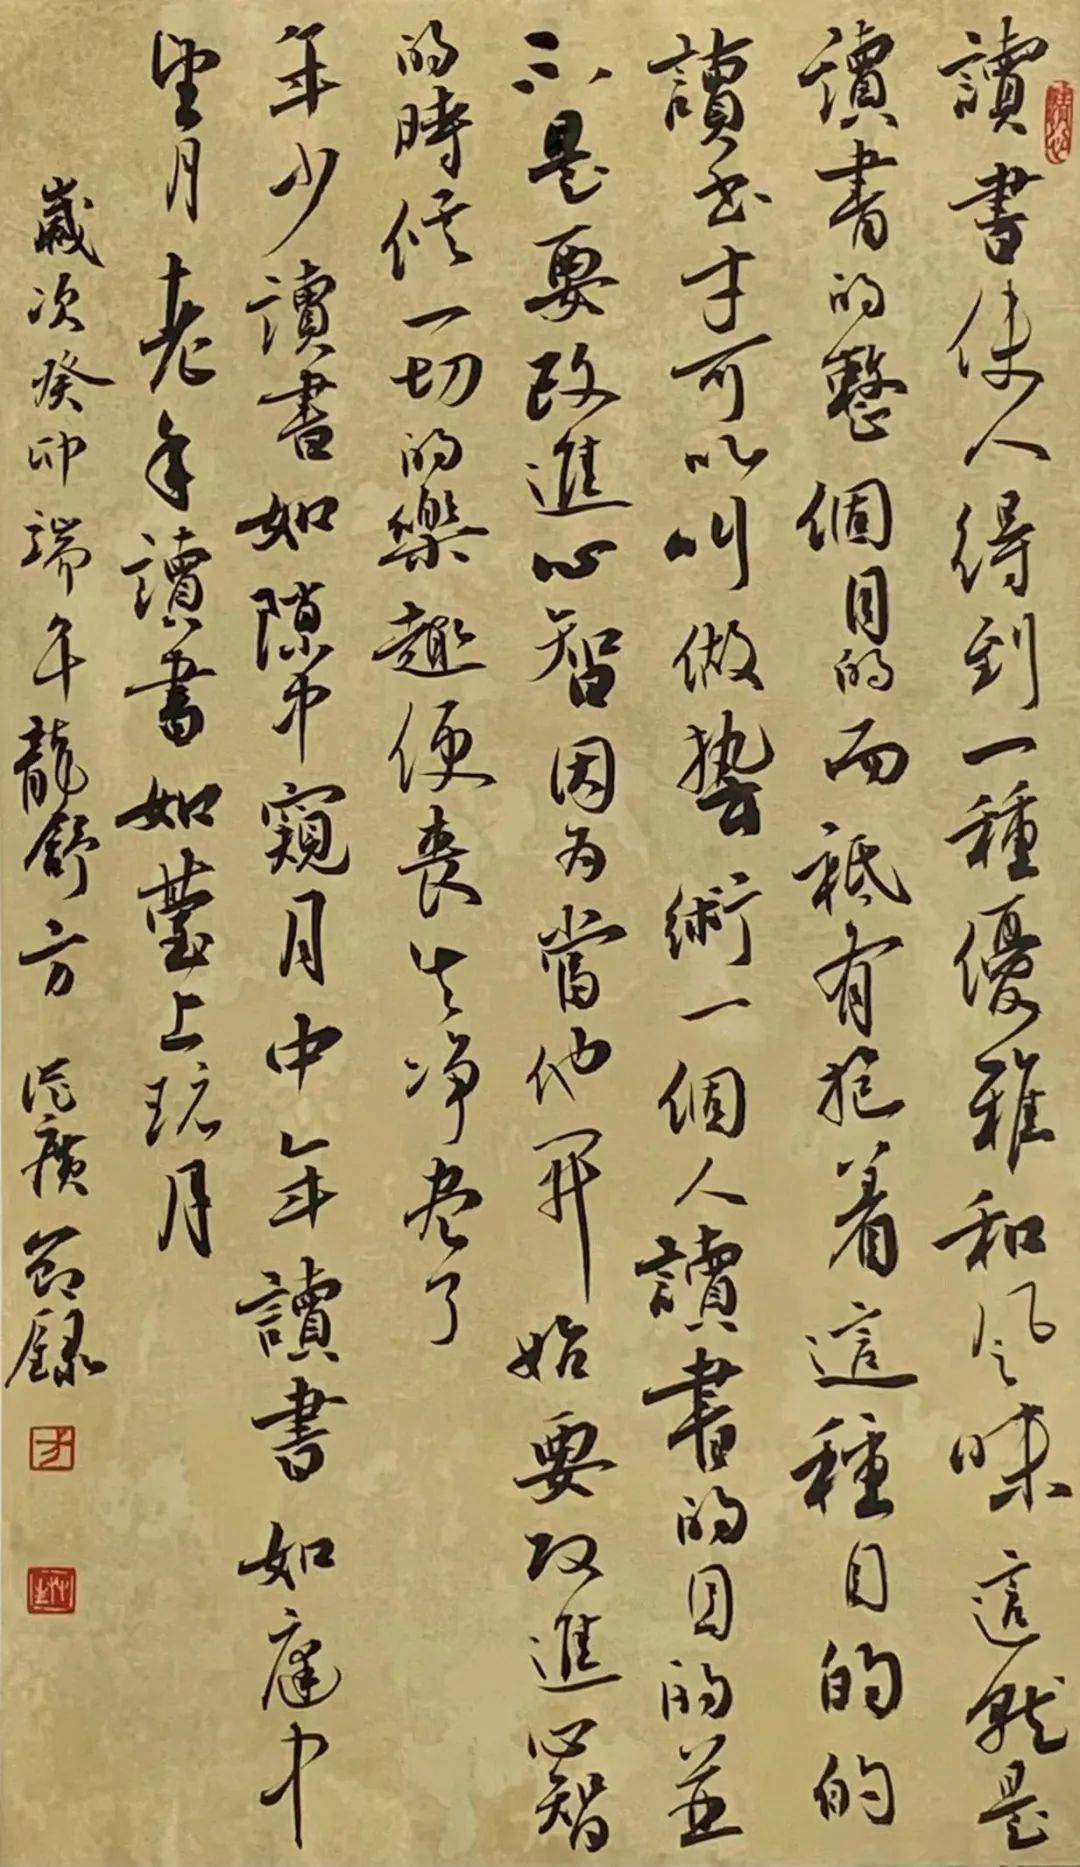 讀書使人得到一種優雅和風味這就是
讀書的整個目的而祗有抱着這種目的的
讀書才可以叫做藝術一個人讀書的目的並
不是要改進心智因為當他开始要改進心智
的時候一切的樂趣便喪失净尽了
年少讀書如隙中窺月中年讀書如庭中
望月老年讀書如臺上玩月
歲次癸卯端午龍舒方 廣節錄